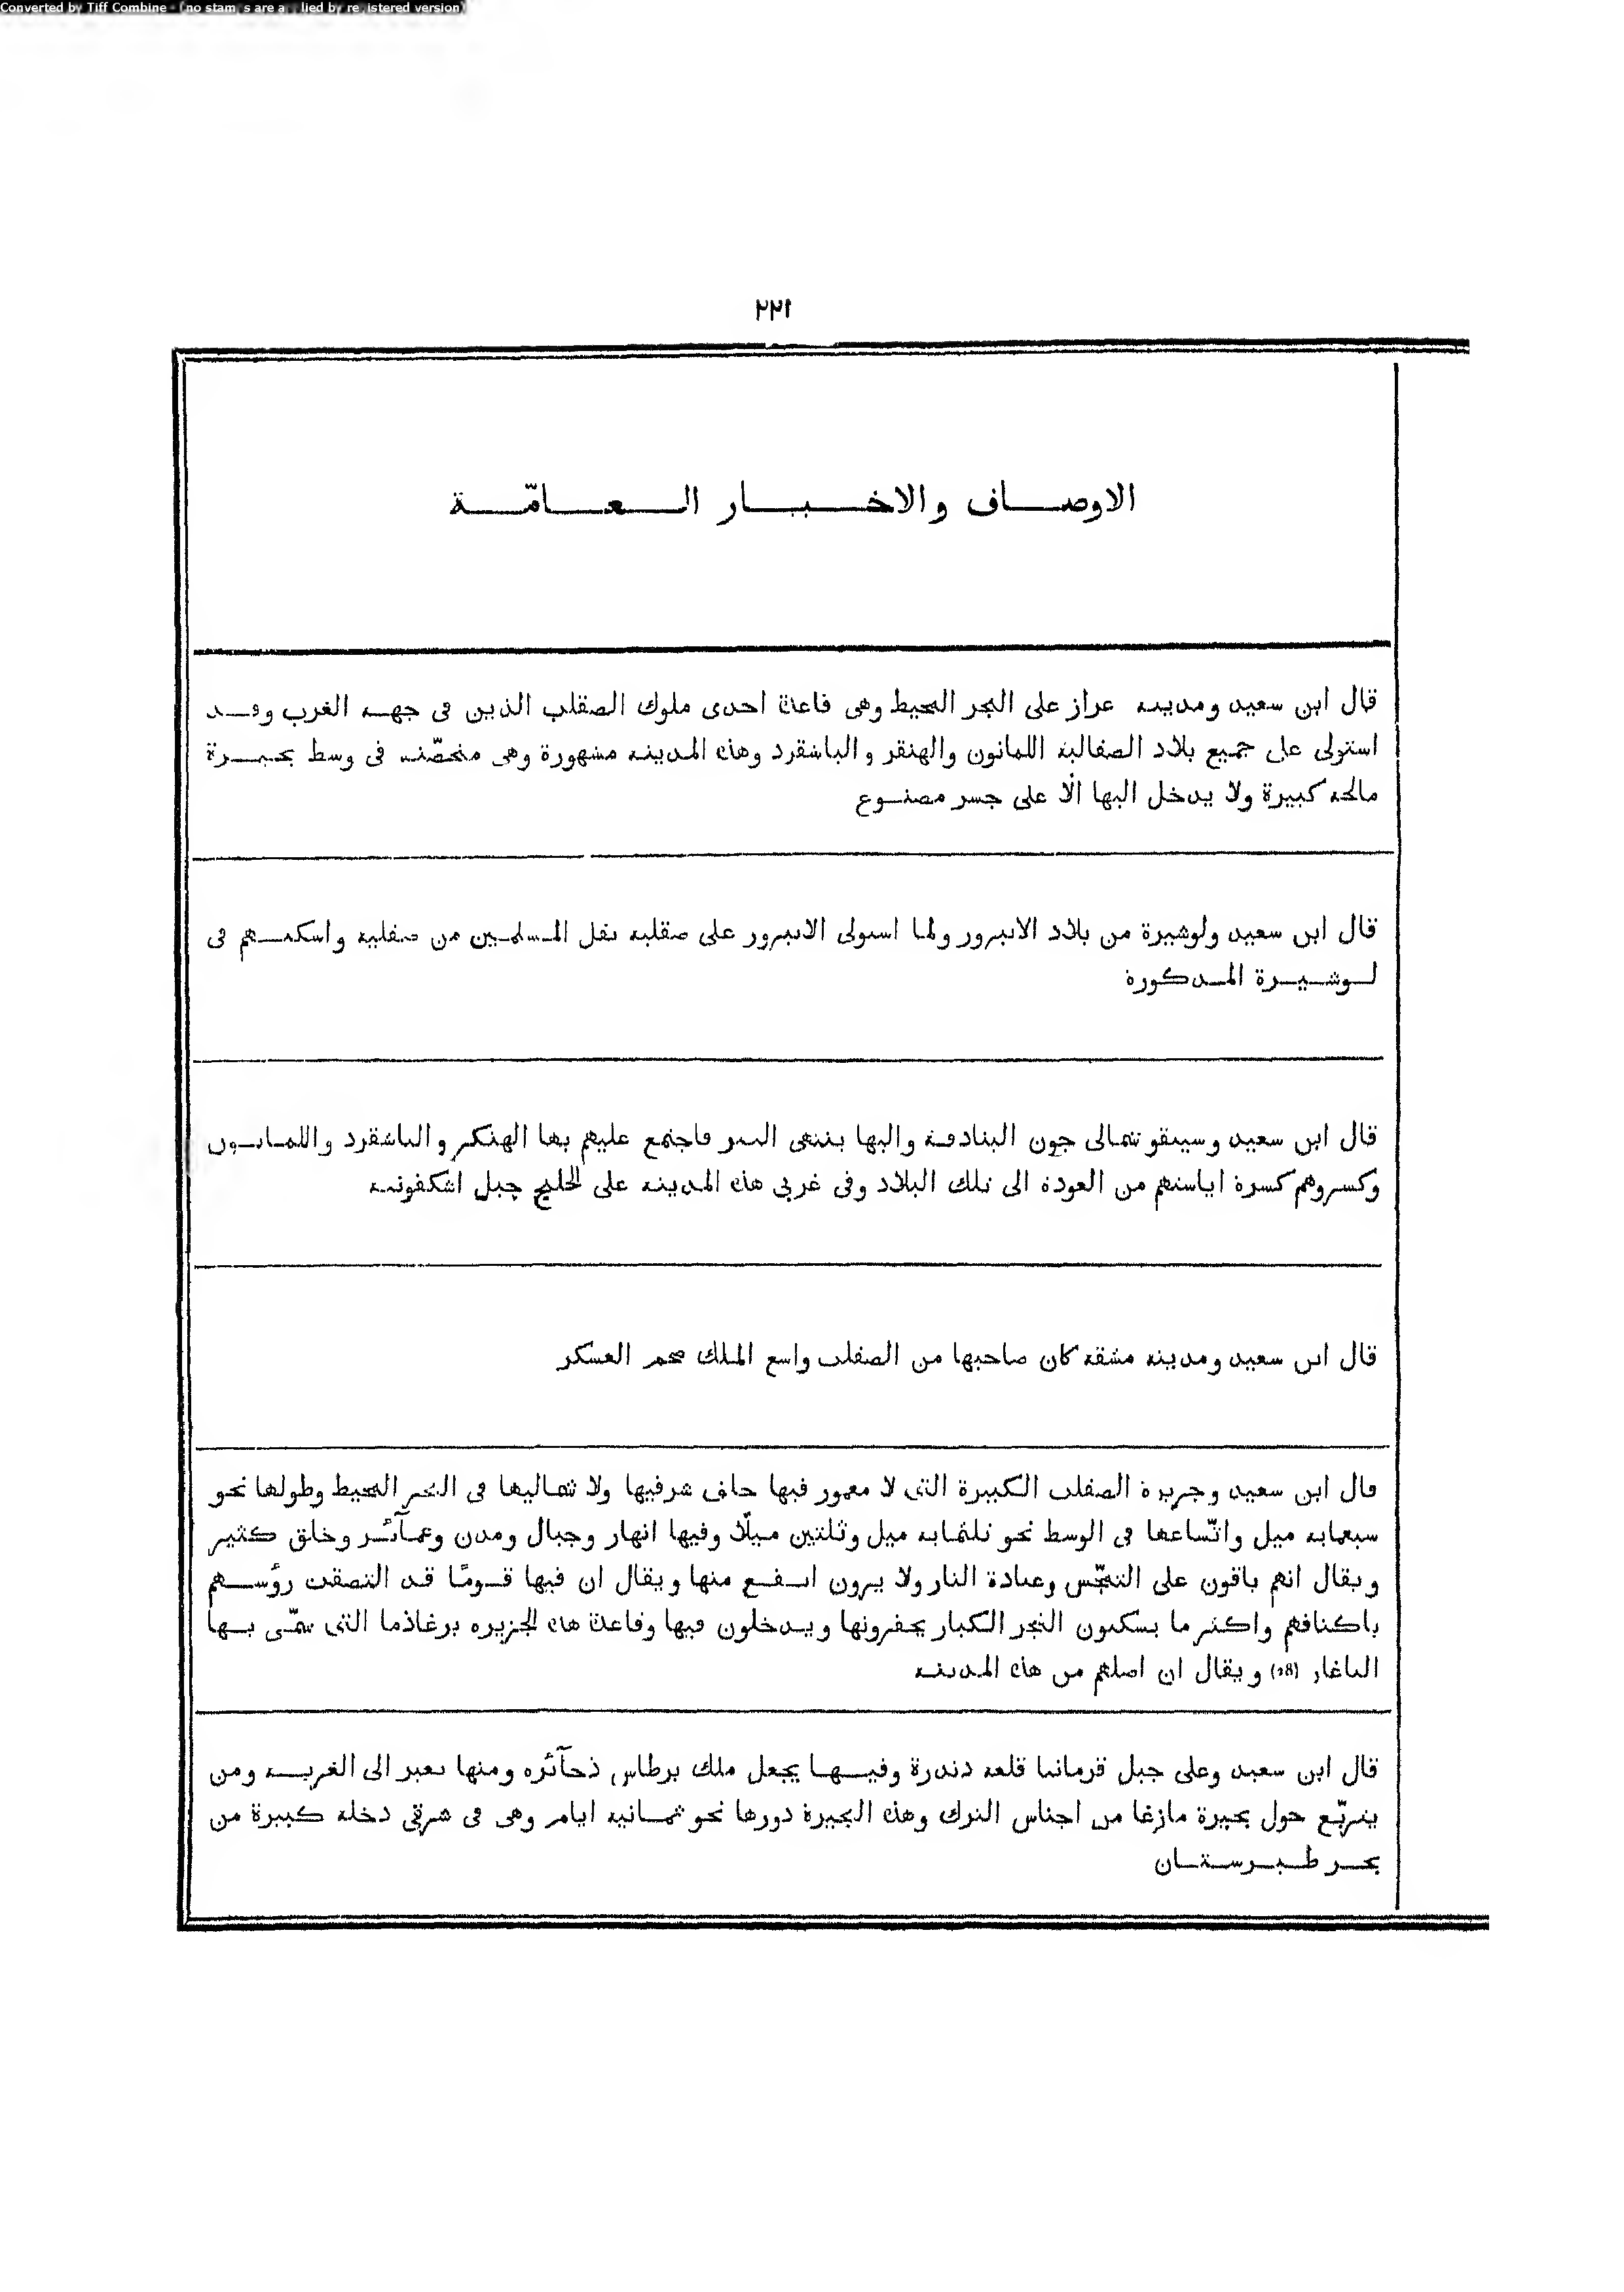 Converted by Tiff Combine - (no stamps are applied by registered version)
٢٢١
الاوصاف والاخبار العامّة
قال ابن سعيد ومدينه عراز على البحر المحيط وهى قاعدة احدى ملوك الصقلب الذين فى جهه الغرب وقد
استولى على جميع بلاد الصقالبة اللمانون والهنقر والباشقرد وهذه المدينه مشهورة وهى متحصّنه فى وسط بحيرة
مالحه كبيرة ولا يدخل اليها الّا على جسر مصنوع
قال ابن سعيد ولوشيرة من بلاد الانبرور ولما استولى الانبرور على صقليه نقل المسلمين من صقليه واسكنهم فى
لوشيرة المذكورة
قال ابن سعيد وسيبقو شمالى جون البنادقة واليها ينتهى التتر فاجتمع عليهم بها الهنكر والباشقرد واللمانيون
وكسروهم كسرة اياستهم من العودة الى تلك البلاد وفى غربى هذه المدينه على الخليج جبل اشكفونيه
قال ابن سعيد ومدينه مشقه كان صاحبها من الصقلب واسع الملك ضخم العسكر
قال ابن سعيد وجزيرة الصقلب الكبيرة التى لا معمور فيها خلف شرقيها ولا شماليها فى البحر المحيط وطولها نحو
سبعمايه ميل واتّساعها فى الوسط نحو ثلثمايه ميل وثلثين ميلًا وفيها انهار وجبال ومدن وعمآئر وخلق كثير
ويقال انهم باقون على التمجّس وعبادة النار ولا يرون انفع منها ويقال ان فيها قومًا قد التصقت رؤسهم
باكتافهم واكثر ما يسكنون الشجر الكبار يحفرونها ويدخلون فيها وقاعدة هذه الجزيره برغاذما التى سمّى بها
الباغار (28) ويقال ان اصلهم من هذه المدينه
قال ابن سعيد وعلى جبل قرمانيا قلعه دندرة وفيها يجعل ملك برطاس ذخآئره ومنها تعبر الى الغربيه ومن
يتربّع حول بحيرة مازغا من اجناس الترك وهذه البحيرة دورها نحو ثمانيه ايام وهى فى شرقى دخله كبيرة من
بحر طبرستان